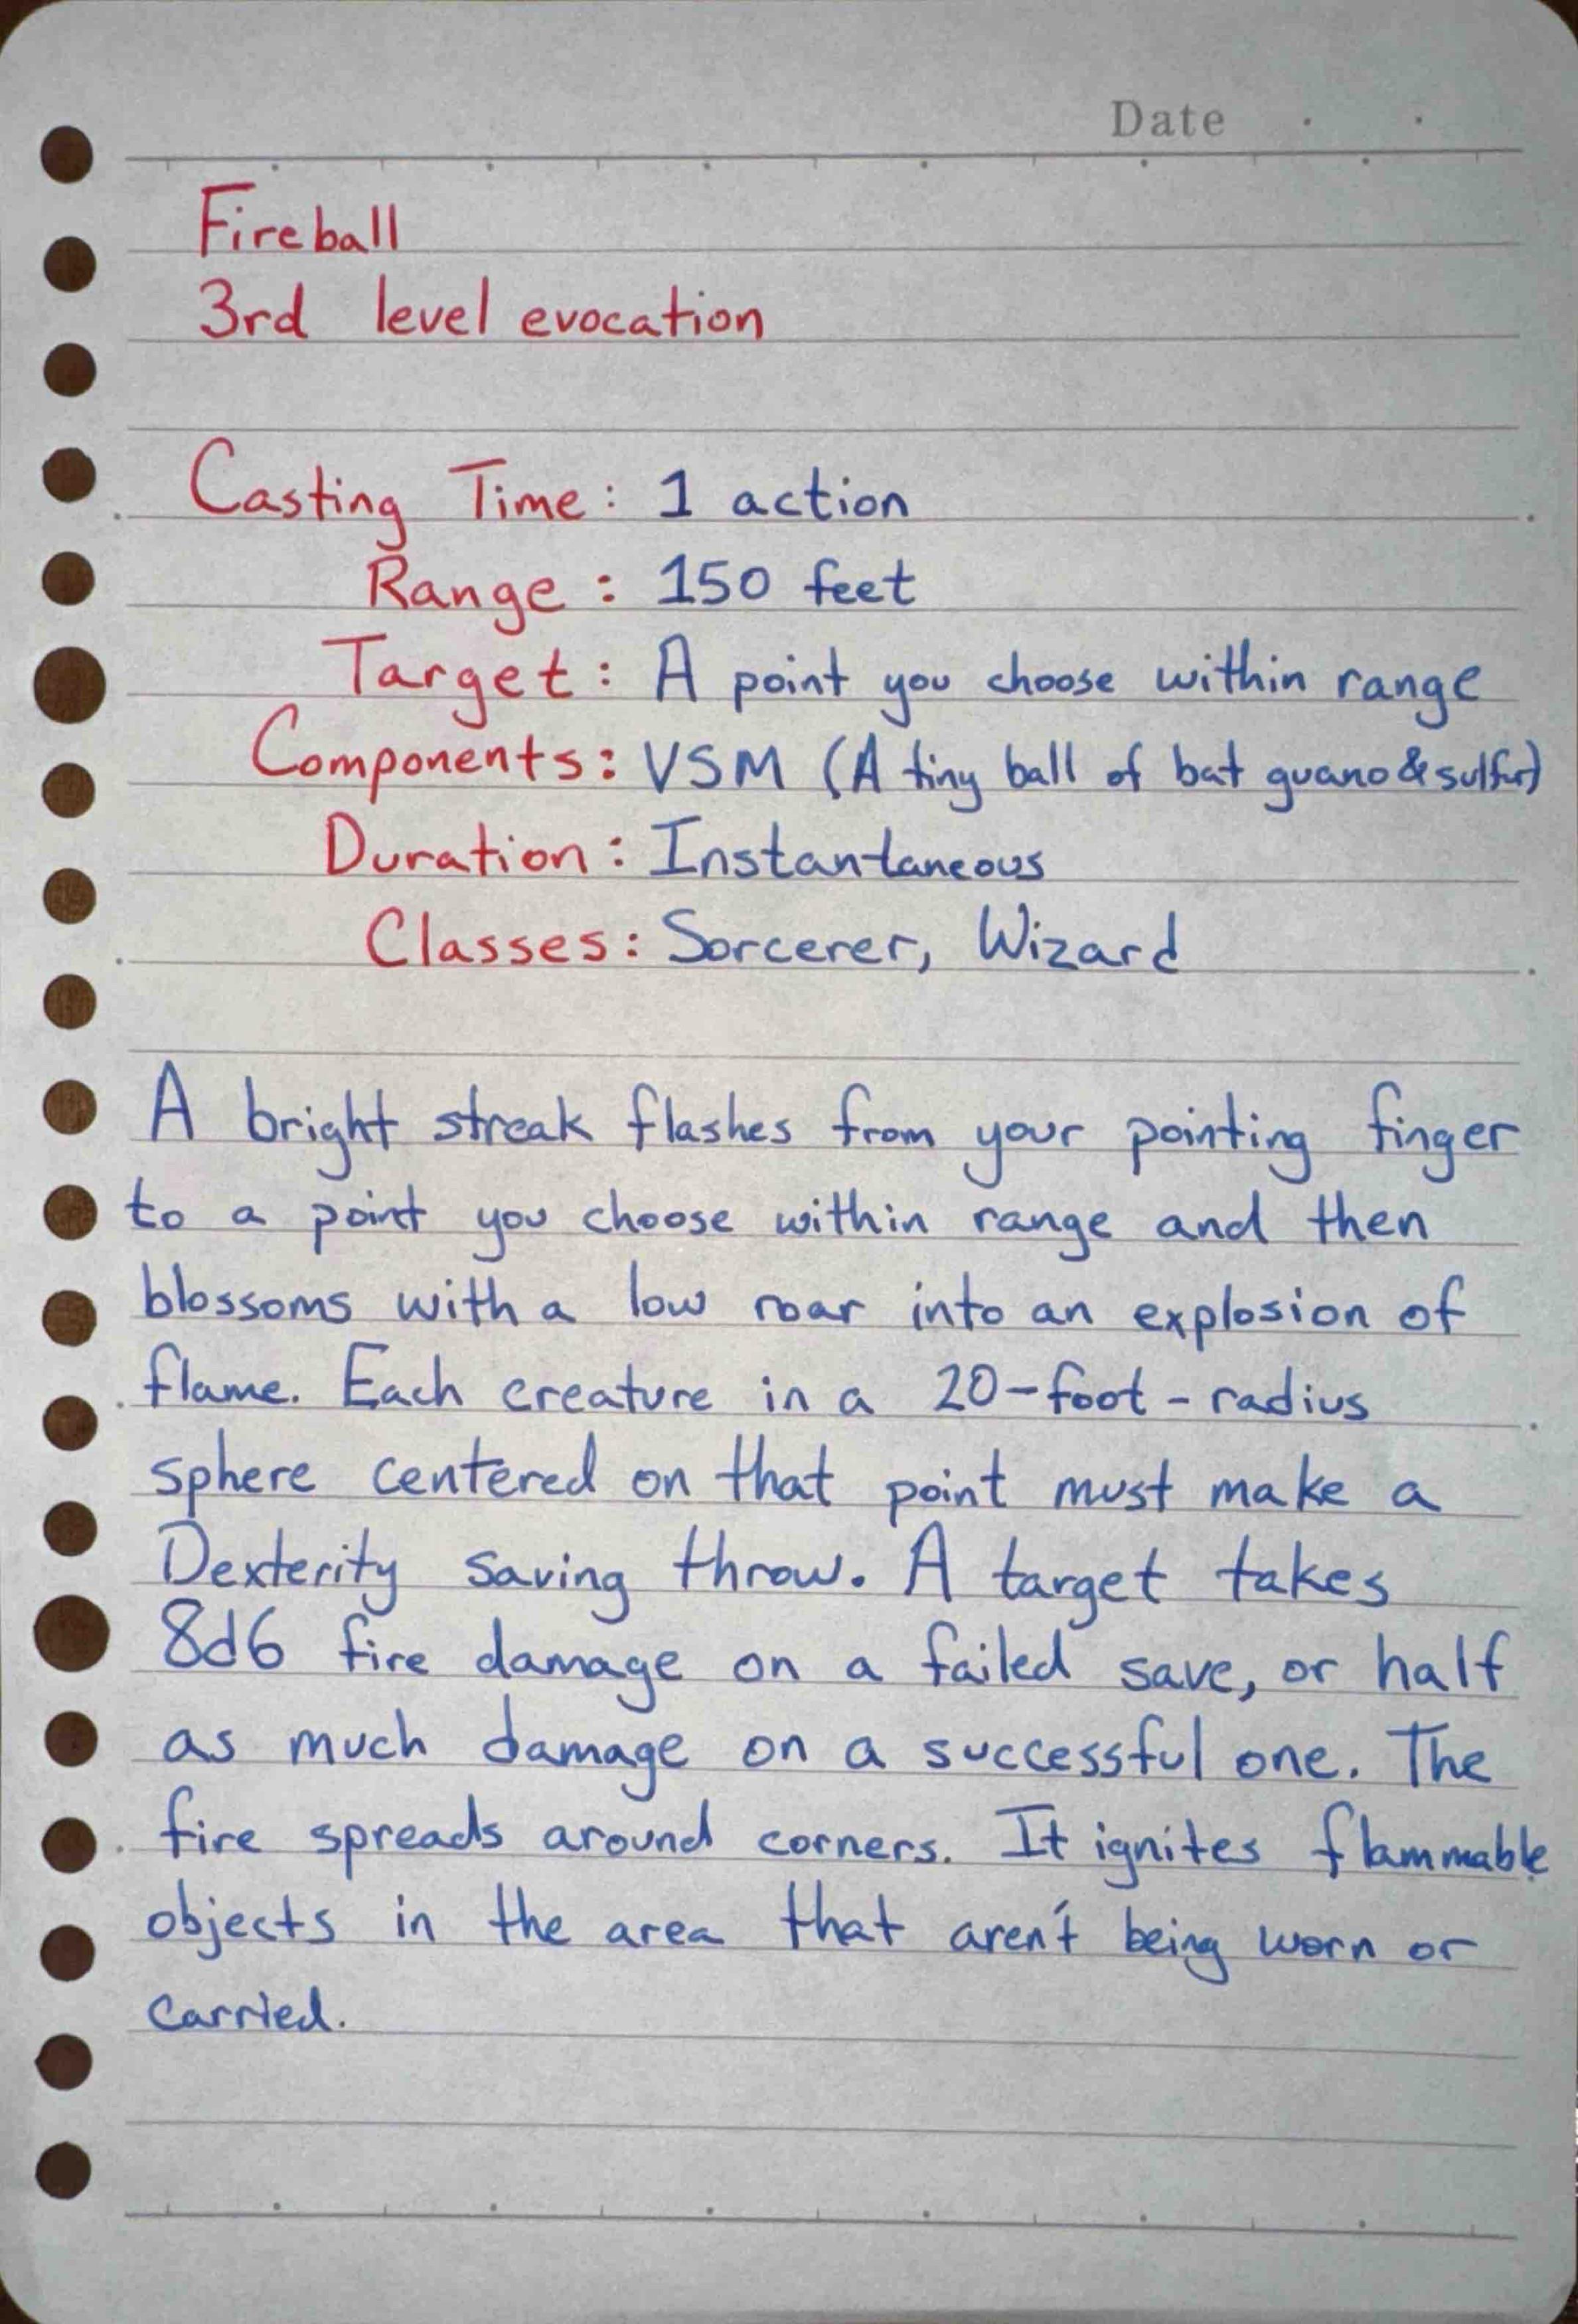 Date
Fireball
3rd level evocation
Casting Time: 1 action
Range: 150 feet
Target: A point you choose within range
Components: VSM (A tiny ball of bat guano & sulfur)
Duration: Instantaneous
Classes: Sorcerer, Wizard
A bright streak flashes from your pointing finger
to a point you choose within range and then
blossoms with a low roar into an explosion of
flame. Each creature in a 20-foot-radius
sphere centered on that point must make a
Dexterity saving throw. A target takes
8d6 fire damage on a failed save, or half
as much damage on a successful one. The
fire spreads around corners. It ignites flammable
objects in the area that aren't being worn or
carried.